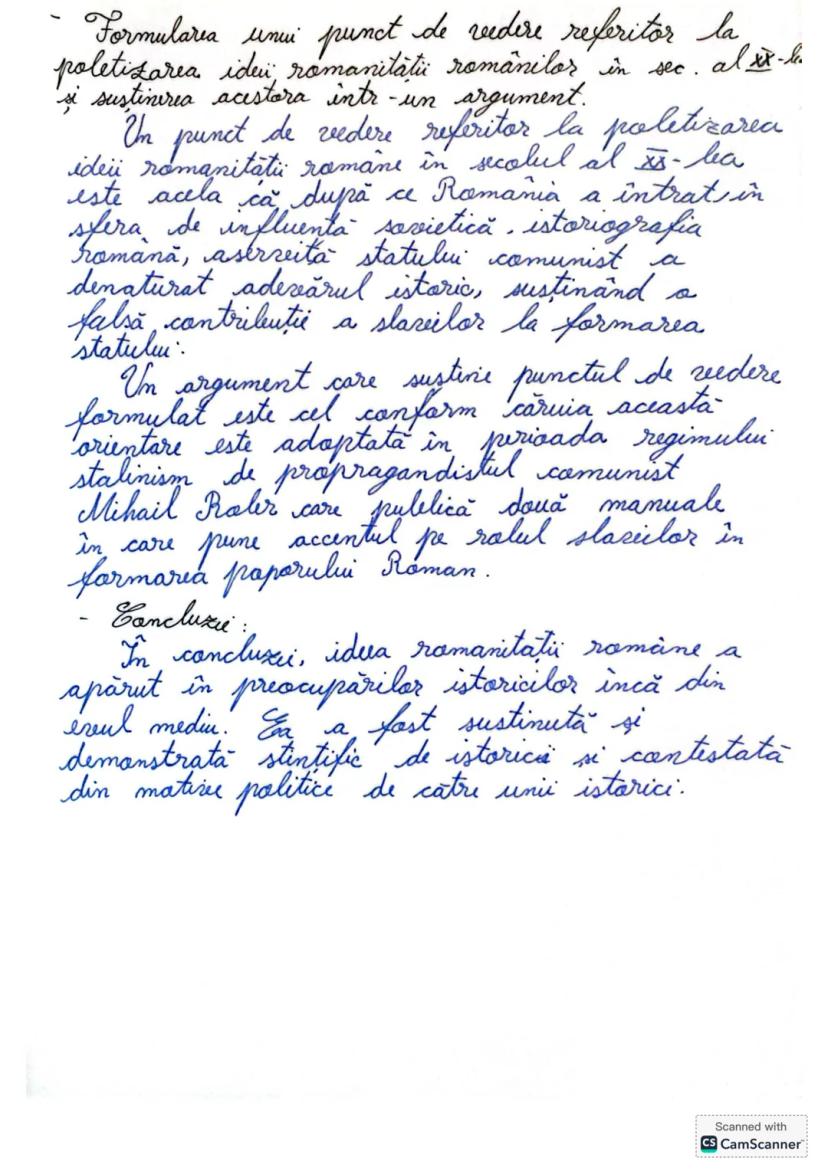 - Formularea unui punct de vedere referitor la
poletizarea ideii romanitătii românilor în sec. al XX-lea
și susținerea acestora într-un argument.
Un punct de vedere referitor la poletizarea
ideii romanității române în secolul al XX-lea
este acela că după ce România a intrat în
sfera de influență sovietică, istoriografia
română, aservită statului comunist a
denaturat adevărul istoric, susținând o
falsă contribuție a slavilor la formarea
statului.
Un argument care susține punctul de vedere
formulat este cel conform căruia această
orientare este adoptată în perioada regimului
stalinism de propragandistul comunist
Mihail Roler care publică două manuale
în care pune accentul pe rolul slavilor în
formarea poporului Roman.
- Concluzie:
În concluzei, ideea romanității române a
apărut în preocupărilor istoricilor încă din
evul mediu. Ea a fost sustinută și
demonstrată stințific de istorici si contestată
din motive politice de către unii istorici.
Scanned with
CS CamScanner